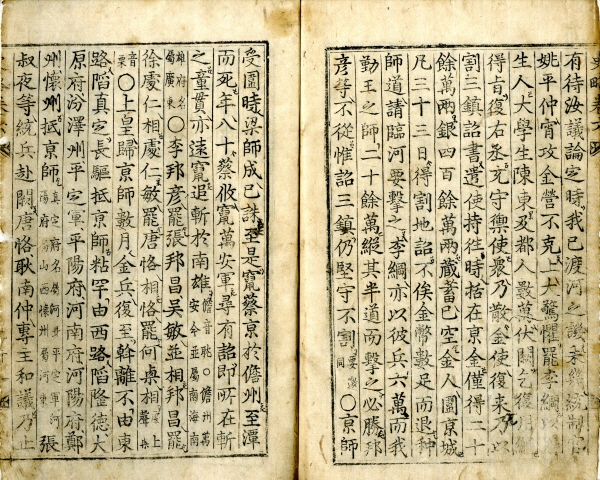 史略卷六
有待汝議論定時我已渡河之譏未幾統制官
姚平仲宵攻金營不克上大驚懼罷李綱以
生人大學生陳東及都人數萬伏闕乞復用綱
得旨復右丞充守禦使衆乃散金使復來乃以
割三鎭詔書遣使持往時括在京金僅得二十
餘萬兩銀四百餘萬兩藏蓄已空金人圍京城
凡三十三日得割地詔不俟金幣數足而退种
師道請臨河要擊之李綱亦以彼兵六萬而我
勤王之師二十餘萬縱其半道而擊之必勝邦
彦等不從惟詔三鎭仍堅守不割 〇京師
受圍時梁師成已誅至是竄蔡京於儋州至潭
而死年八十蔡攸竄萬安軍尋有詔卽所在斬
之童貫亦遠竄追斬於南雄 儋音 〇儋州萬安今並屬海南南
雄府名屬廣東 〇李邦彦罷張邦昌吳敏並相邦昌罷
徐處仁相處仁敏罷唐恪相恪罷何㮚相
〇上皇歸京師數月金兵復至斡離不由東
路陷眞定長驅抵京師粘罕由西路陷隆德太
原府汾澤州平定軍平陽府河南府河陽府鄭
州懷州抵京師 張
叔夜等統兵赴闕唐恪耿南仲專主和議乃止